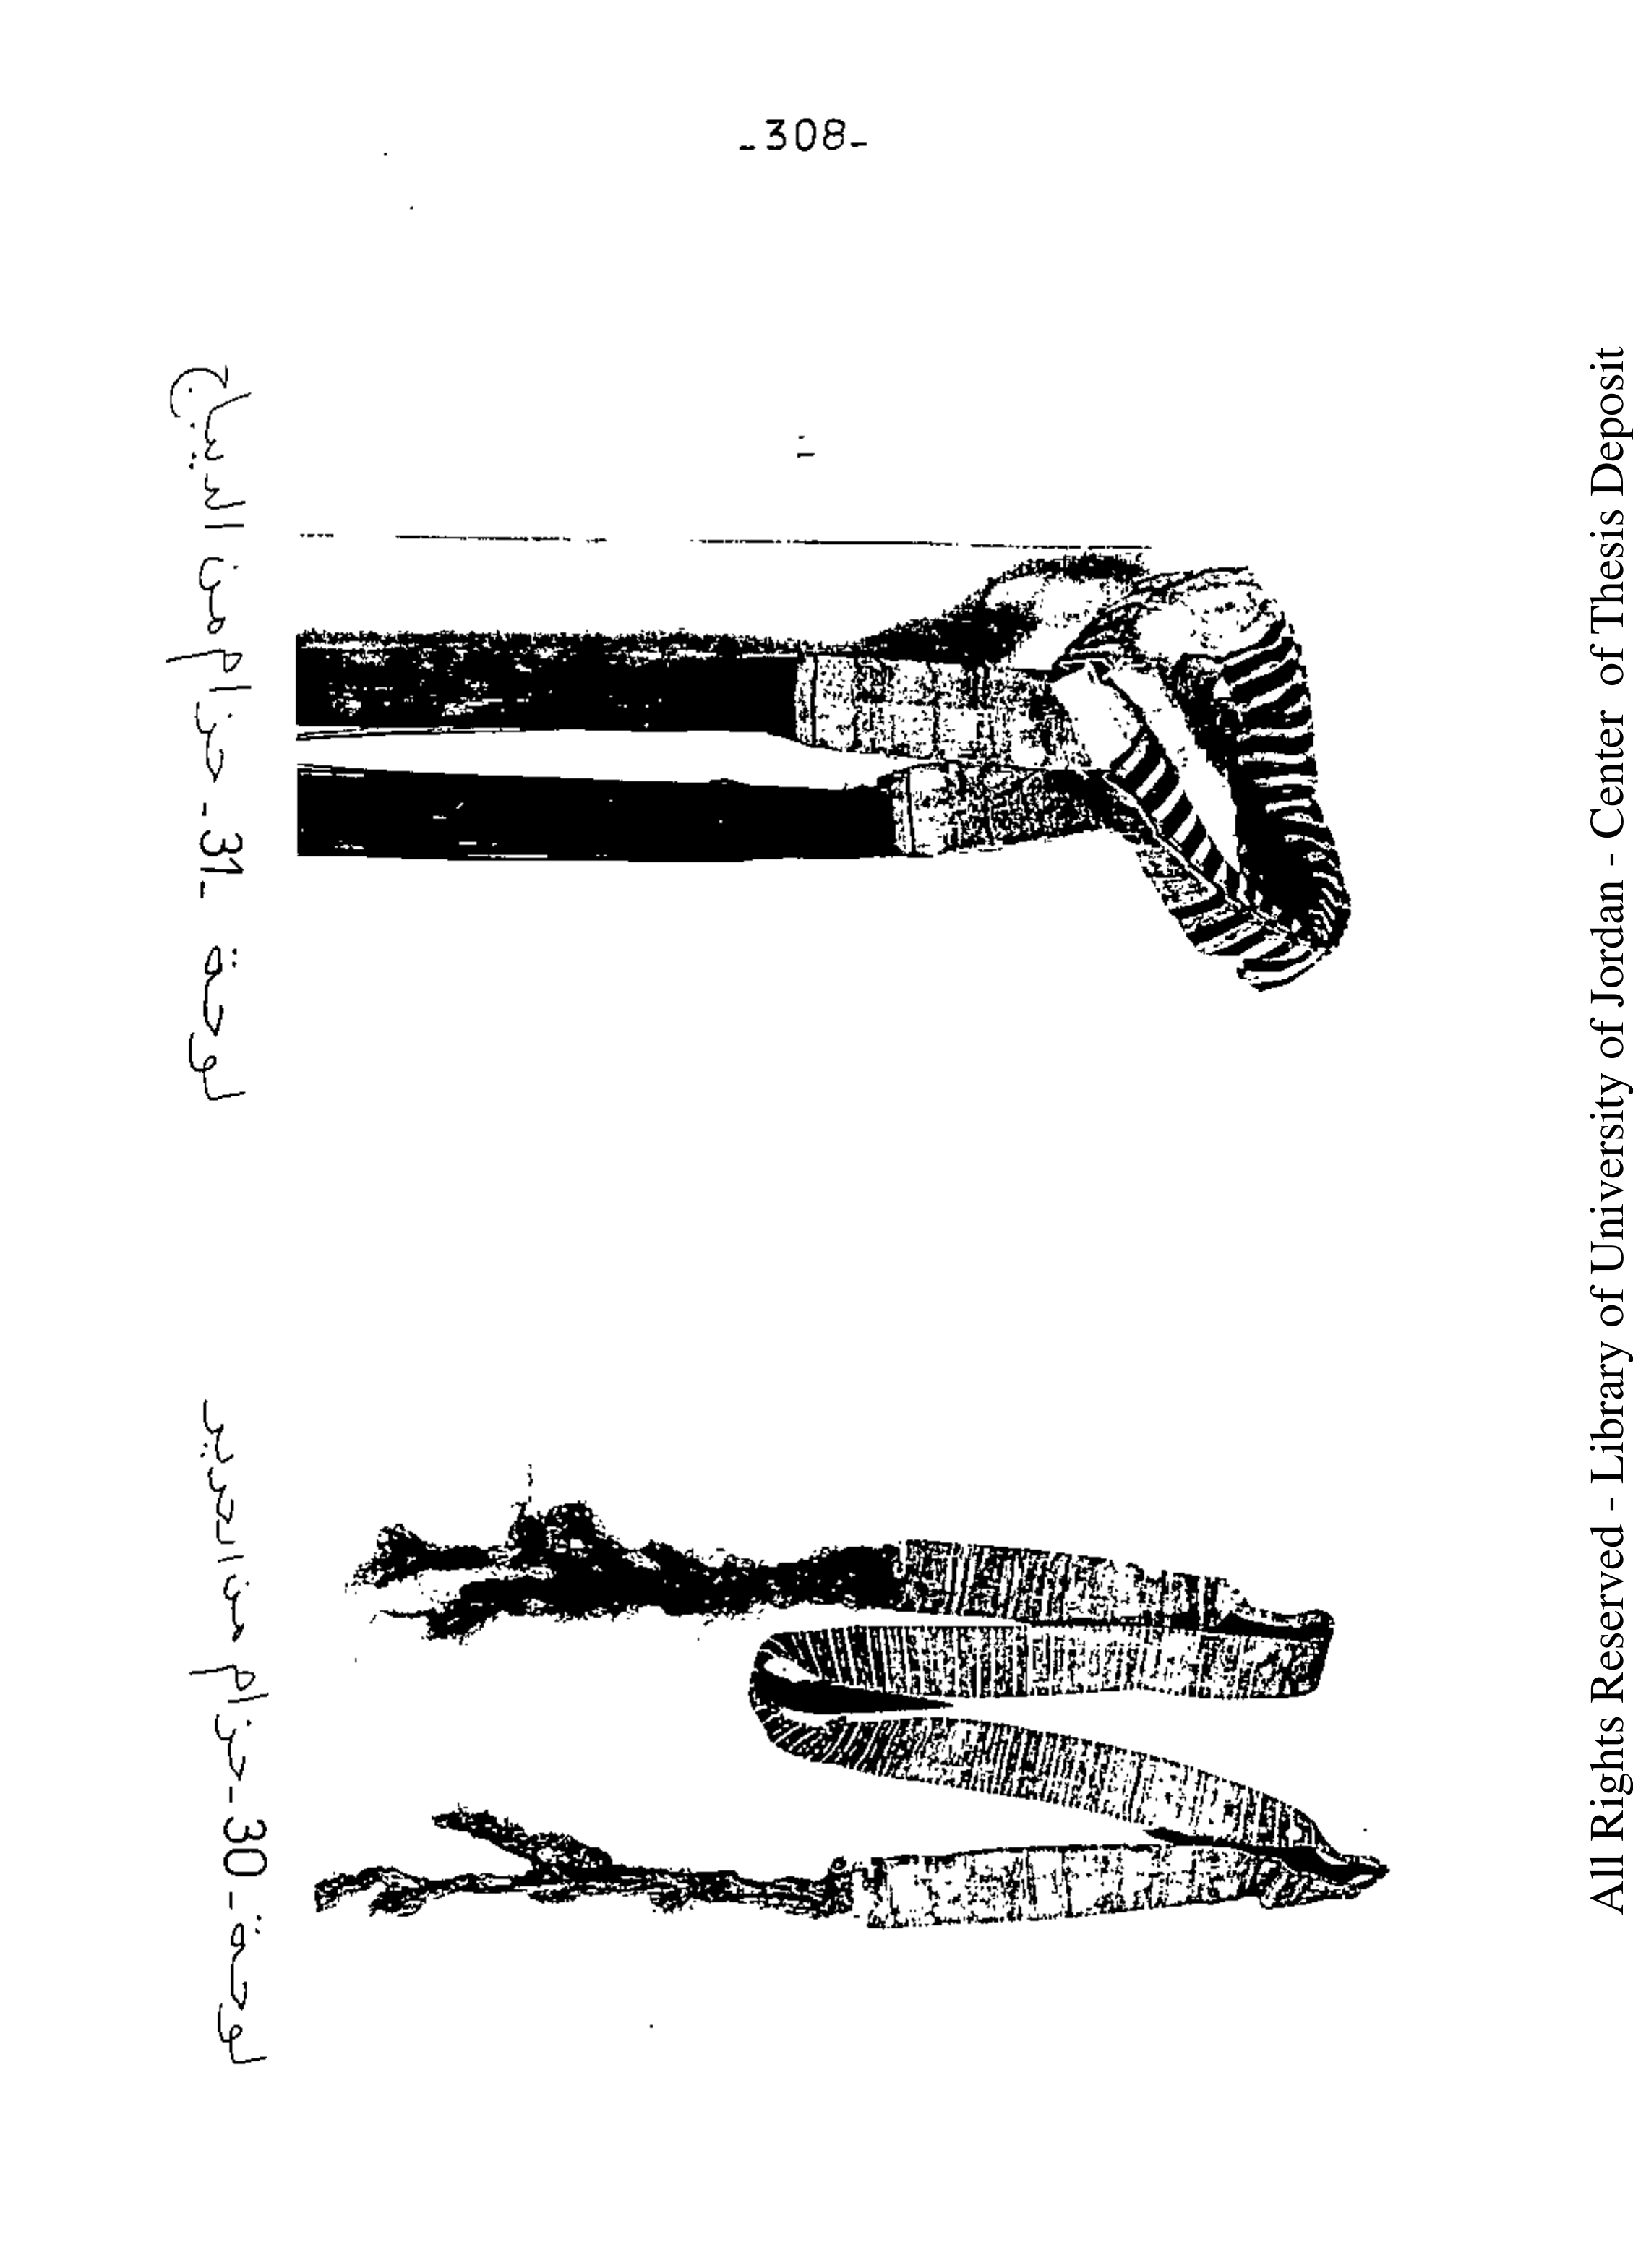 -308-
لوحة -30- حزام من الحرير
لوحة -31- حزام من الديباج
All Rights Reserved - Library of University of Jordan - Center of Thesis Deposit